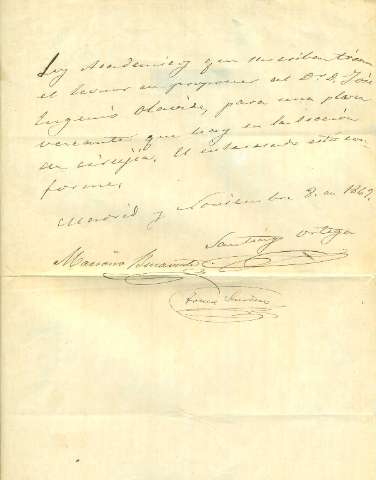 Los Academicos que suscriben tienen
el honor en proponer al Dr. D. José
Eugenio Olavide, para una plaza
vacante que hay en la seccion
de cirujia. El interesado está con-
forme.
Madrid y Noviembre 8. de 1862.
Santiago Ortega
Mariano Benavente